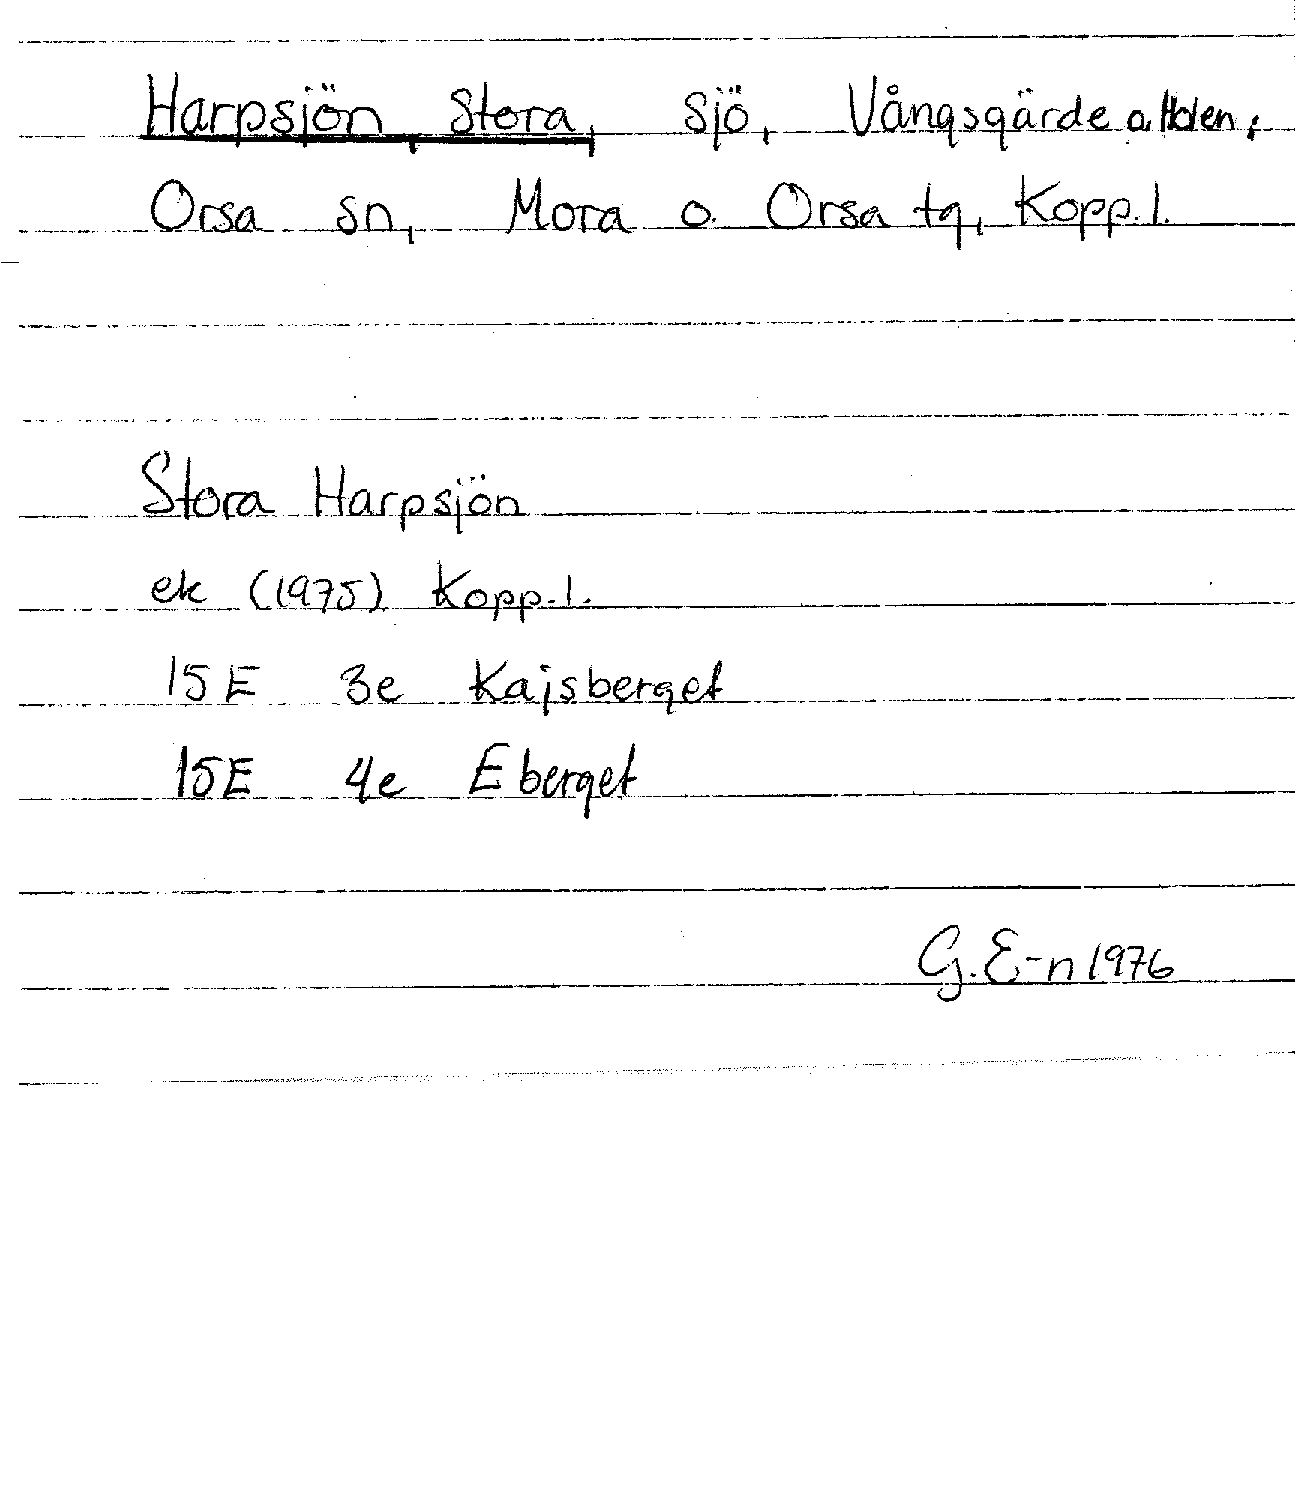 Harpsjön, Stora, sjö, Vångsgärde o. Holen,
Orsa sn, Mora o. Orsa tg, Kopp. l.
Stora Harpsjön
ek (1975) Kopp. l.
15E 3e Kajsberget
15E 4e Eberget
G. E-n 1976